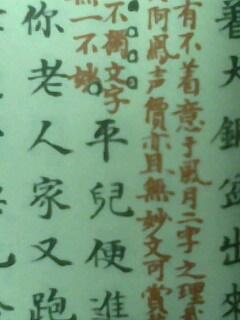 着大銅盆出來
有不着意于風月二字之理
阿鳳声價亦且無妙文可賞
不獨文字
無一不妙
平兒便進
你老人家又跑